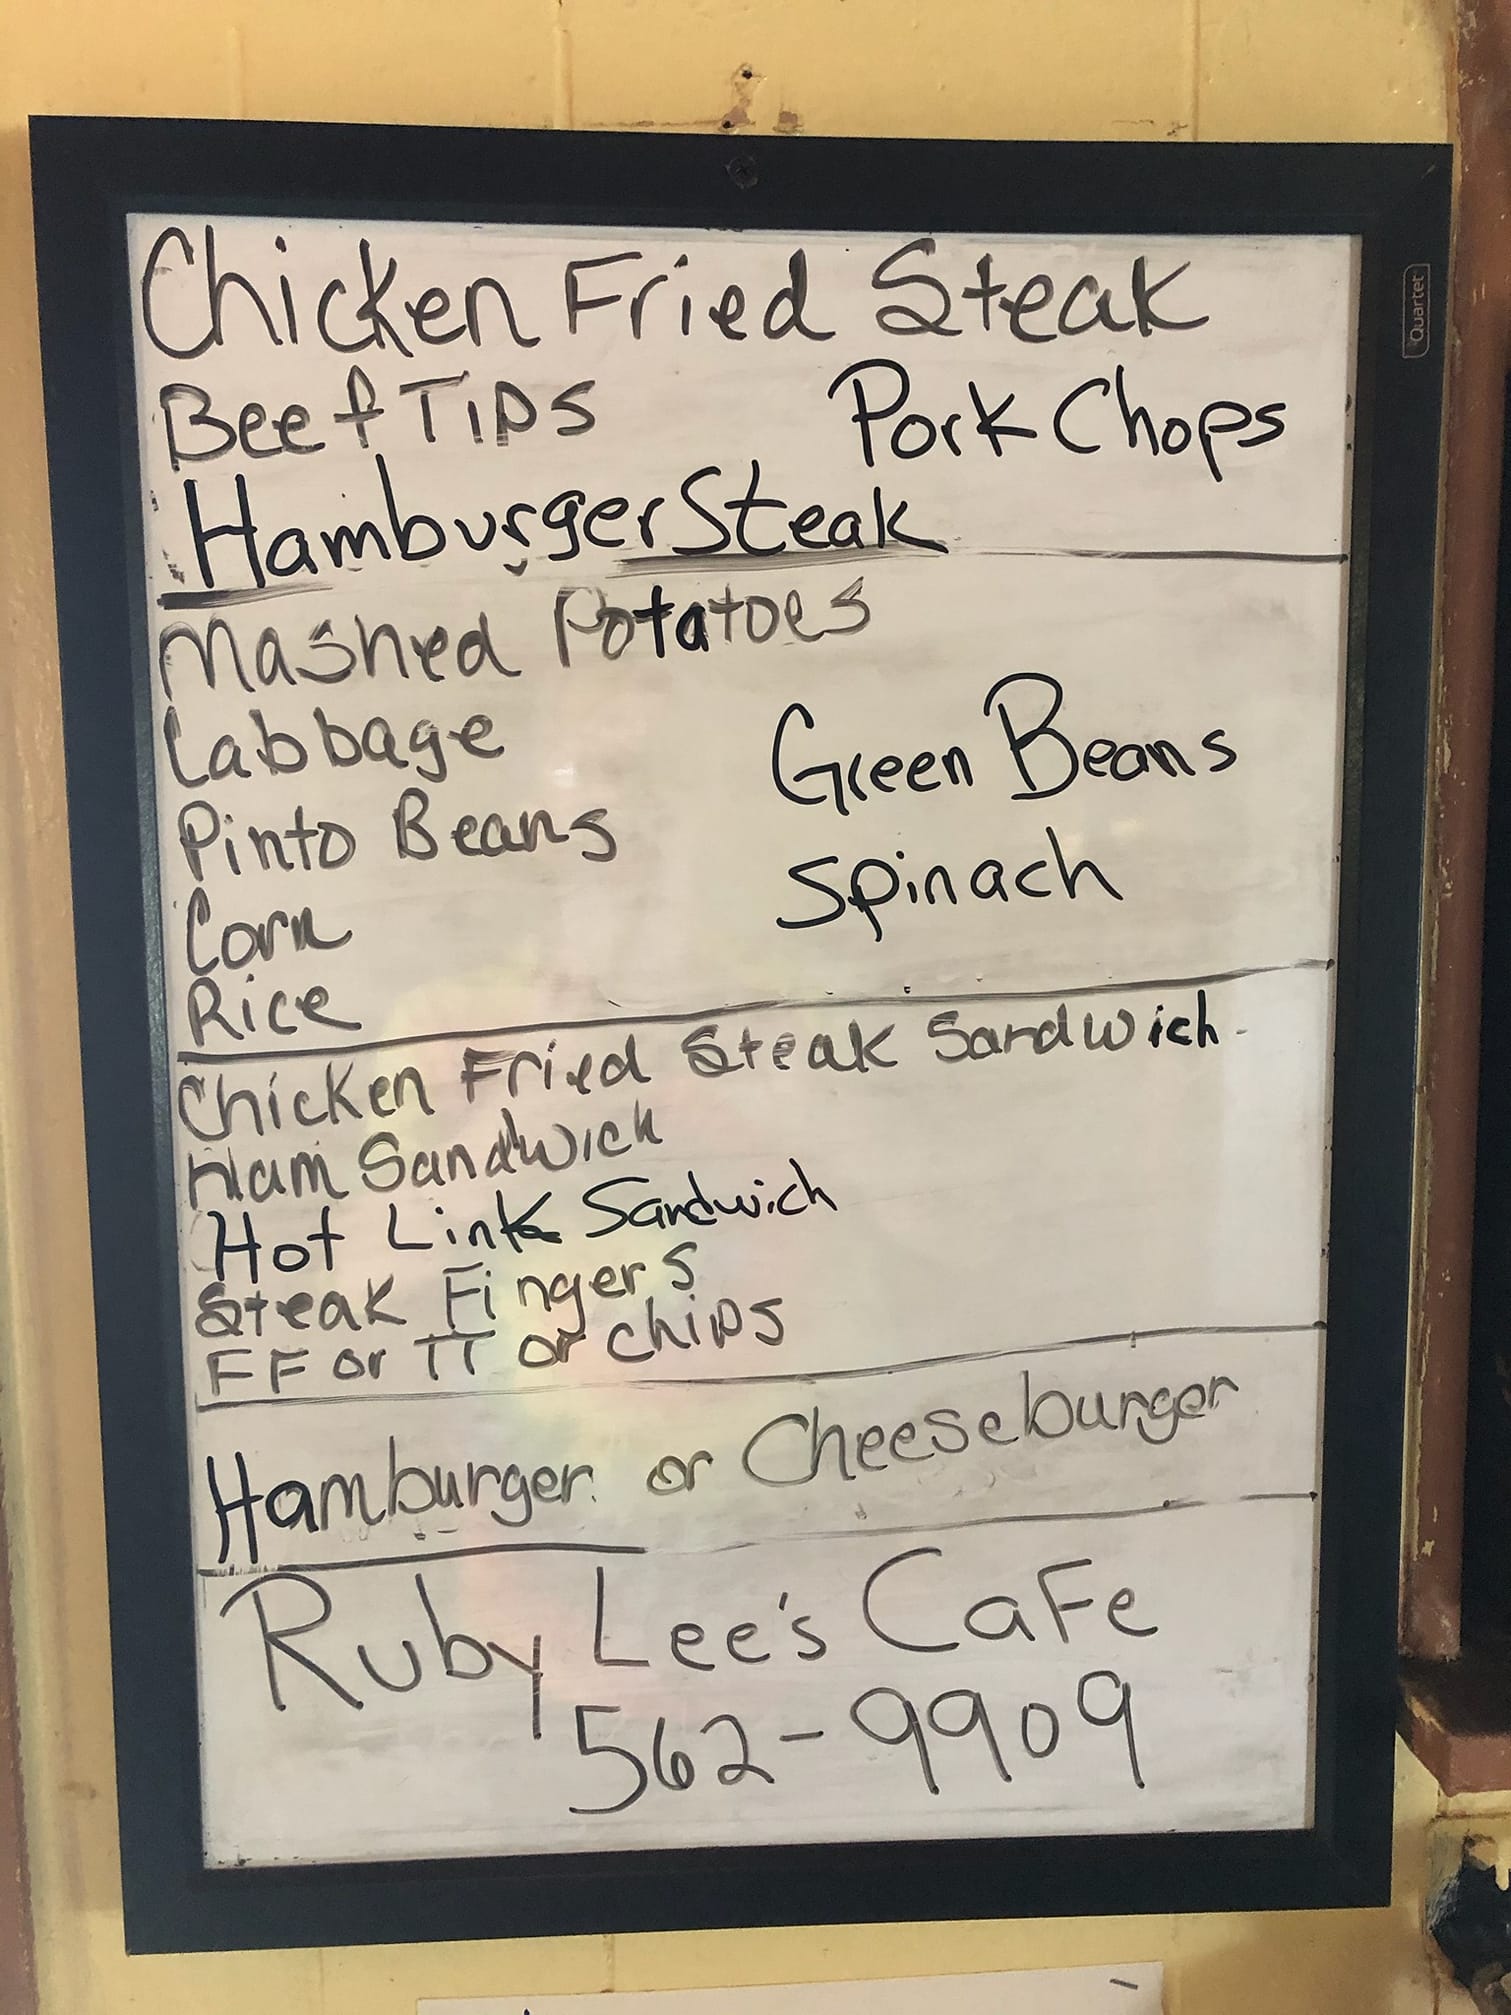 Quartet
Chicken Fried Steak
Beef Tips
Pork Chops
Hamburger Steak
Mashed Potatoes
Cabbage
Pinto Beans
Corn
Rice
Green Beans
Spinach
Chicken Fried Steak Sandwich
Ham Sandwich
Hot Link Sandwich
Steak Fingers
FF or TT or Chips
Hamburger or Cheeseburger
Ruby Lee's CaFe
562-9909